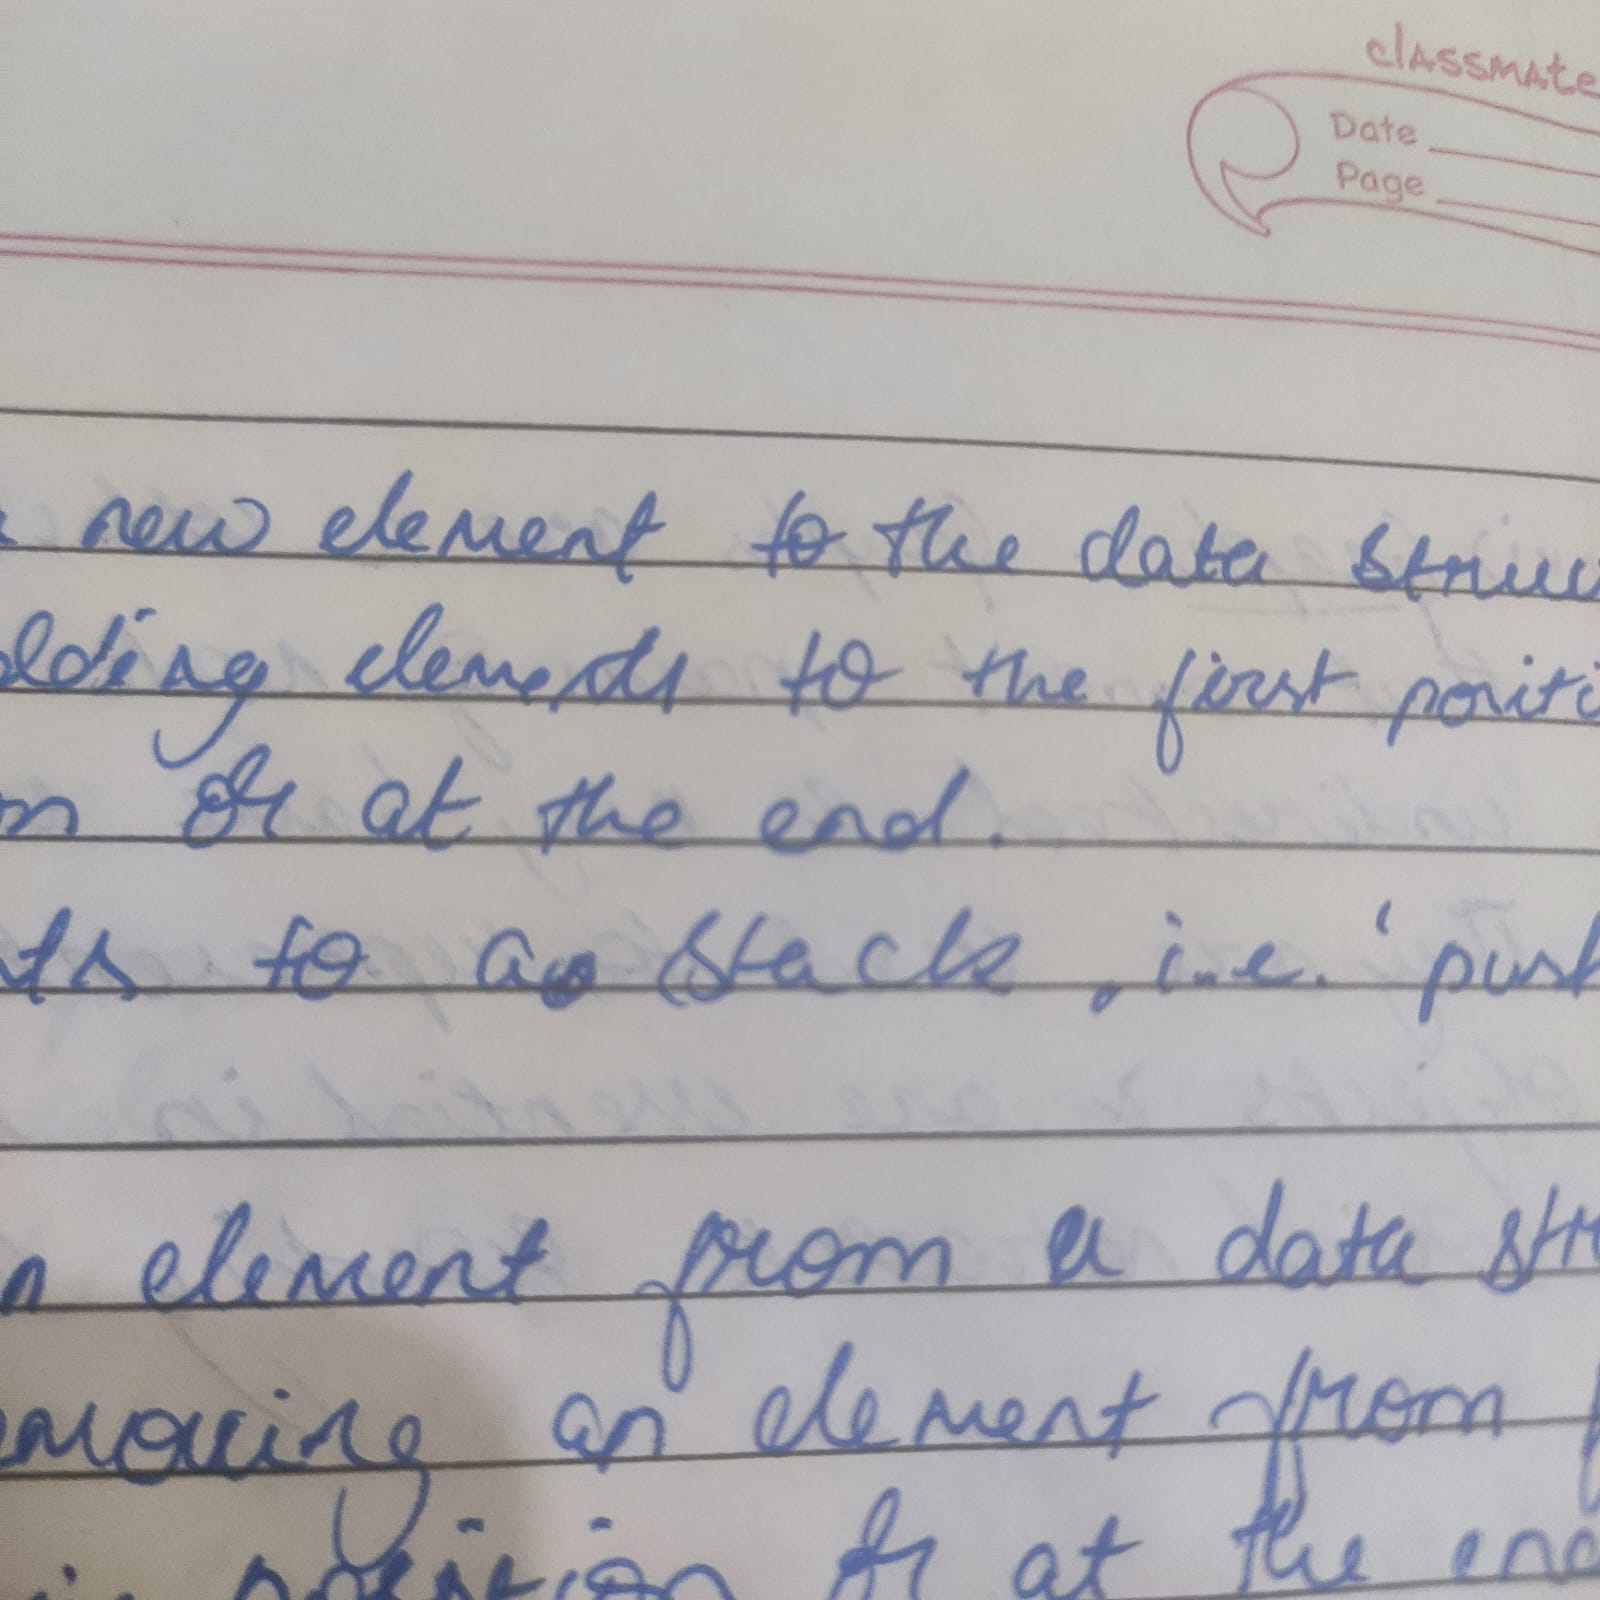 classmate
Date
Page
new element to the data struc
dding elements to the first positi
n or at the end.
ts to a stack, i.e. 'push
n element from a data str
emoving an element from
position or at the end